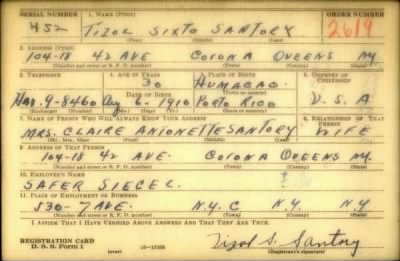 SERIAL NUMBER 1. NAME (Print) ORDER NUMBER
452 TIZOL SIXTO SANTORY 2619
2. ADDRESS (Print)
104-18 42 AVE CORONA QUEENS NY.
(Number and street or R. F. D. number) (Town) (County) (State)
3. TELEPHONE 4. AGE IN YEARS 5. PLACE OF BIRTH 6. COUNTRY OF CITIZENSHIP
30 HUMACAO
DATE OF BIRTH
HAV. 9-8460 Aug 6-1910 PORTO RICO U. S. A
(Exchange) (Number) (Mo.) (Day) (Yr.) (State or country)
7. NAME OF PERSON WHO WILL ALWAYS KNOW YOUR ADDRESS 8. RELATIONSHIP OF THAT PERSON
MRS. CLAIRE ANTONETTE SANTORY WIFE
(Mr., Mrs., Miss) (First) (Middle) (Last)
9. ADDRESS OF THAT PERSON
104-18 42 AVE. CORONA QUEENS NY.
(Number and street or R. F. D. number) (Town) (County) (State)
10. EMPLOYER'S NAME
SAFER SIEGEL
11. PLACE OF EMPLOYMENT OR BUSINESS
530-7 AVE. N.Y.C N.Y. N.Y
(Number and street or R. F. D. number) (Town) (County) (State)
I AFFIRM THAT I HAVE VERIFIED ABOVE ANSWERS AND THAT THEY ARE TRUE.
REGISTRATION CARD
D. S. S. Form 1 (over) 16-17105
Tizol S. Santory
(Registrant's signature)